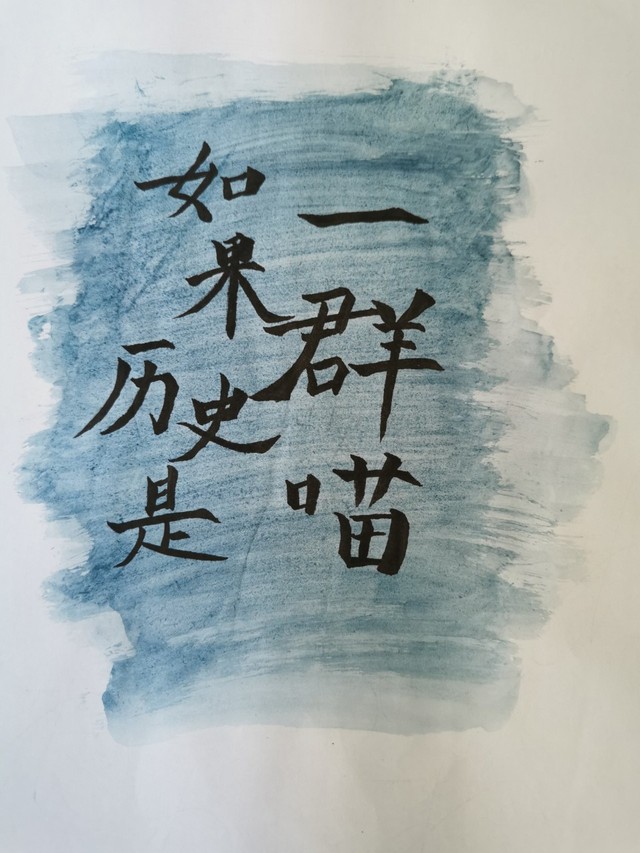 如果
历史
是
一
群
喵